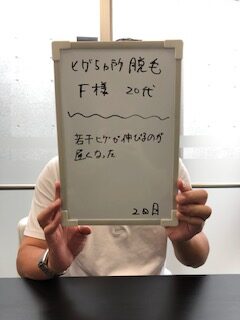 ヒゲ5カ所 脱毛
F様 20代
若干ヒゲが伸びるのが
遅くなった
2回目